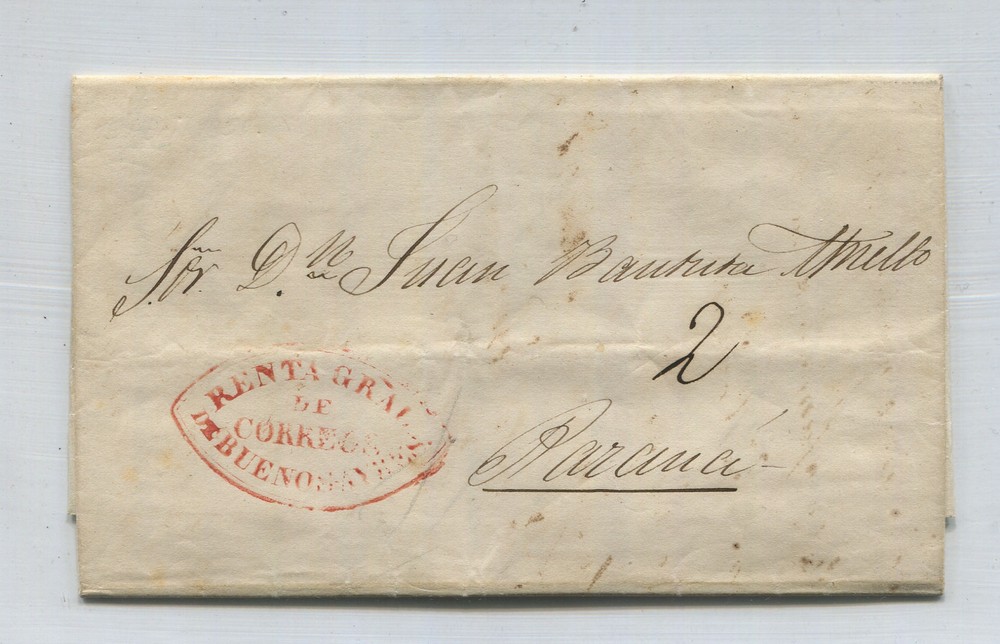 Sor. D.n Juan Bautista
2
Paraná
RENTA GRAL
DE
CORREOS
DE BUENOS AYRES